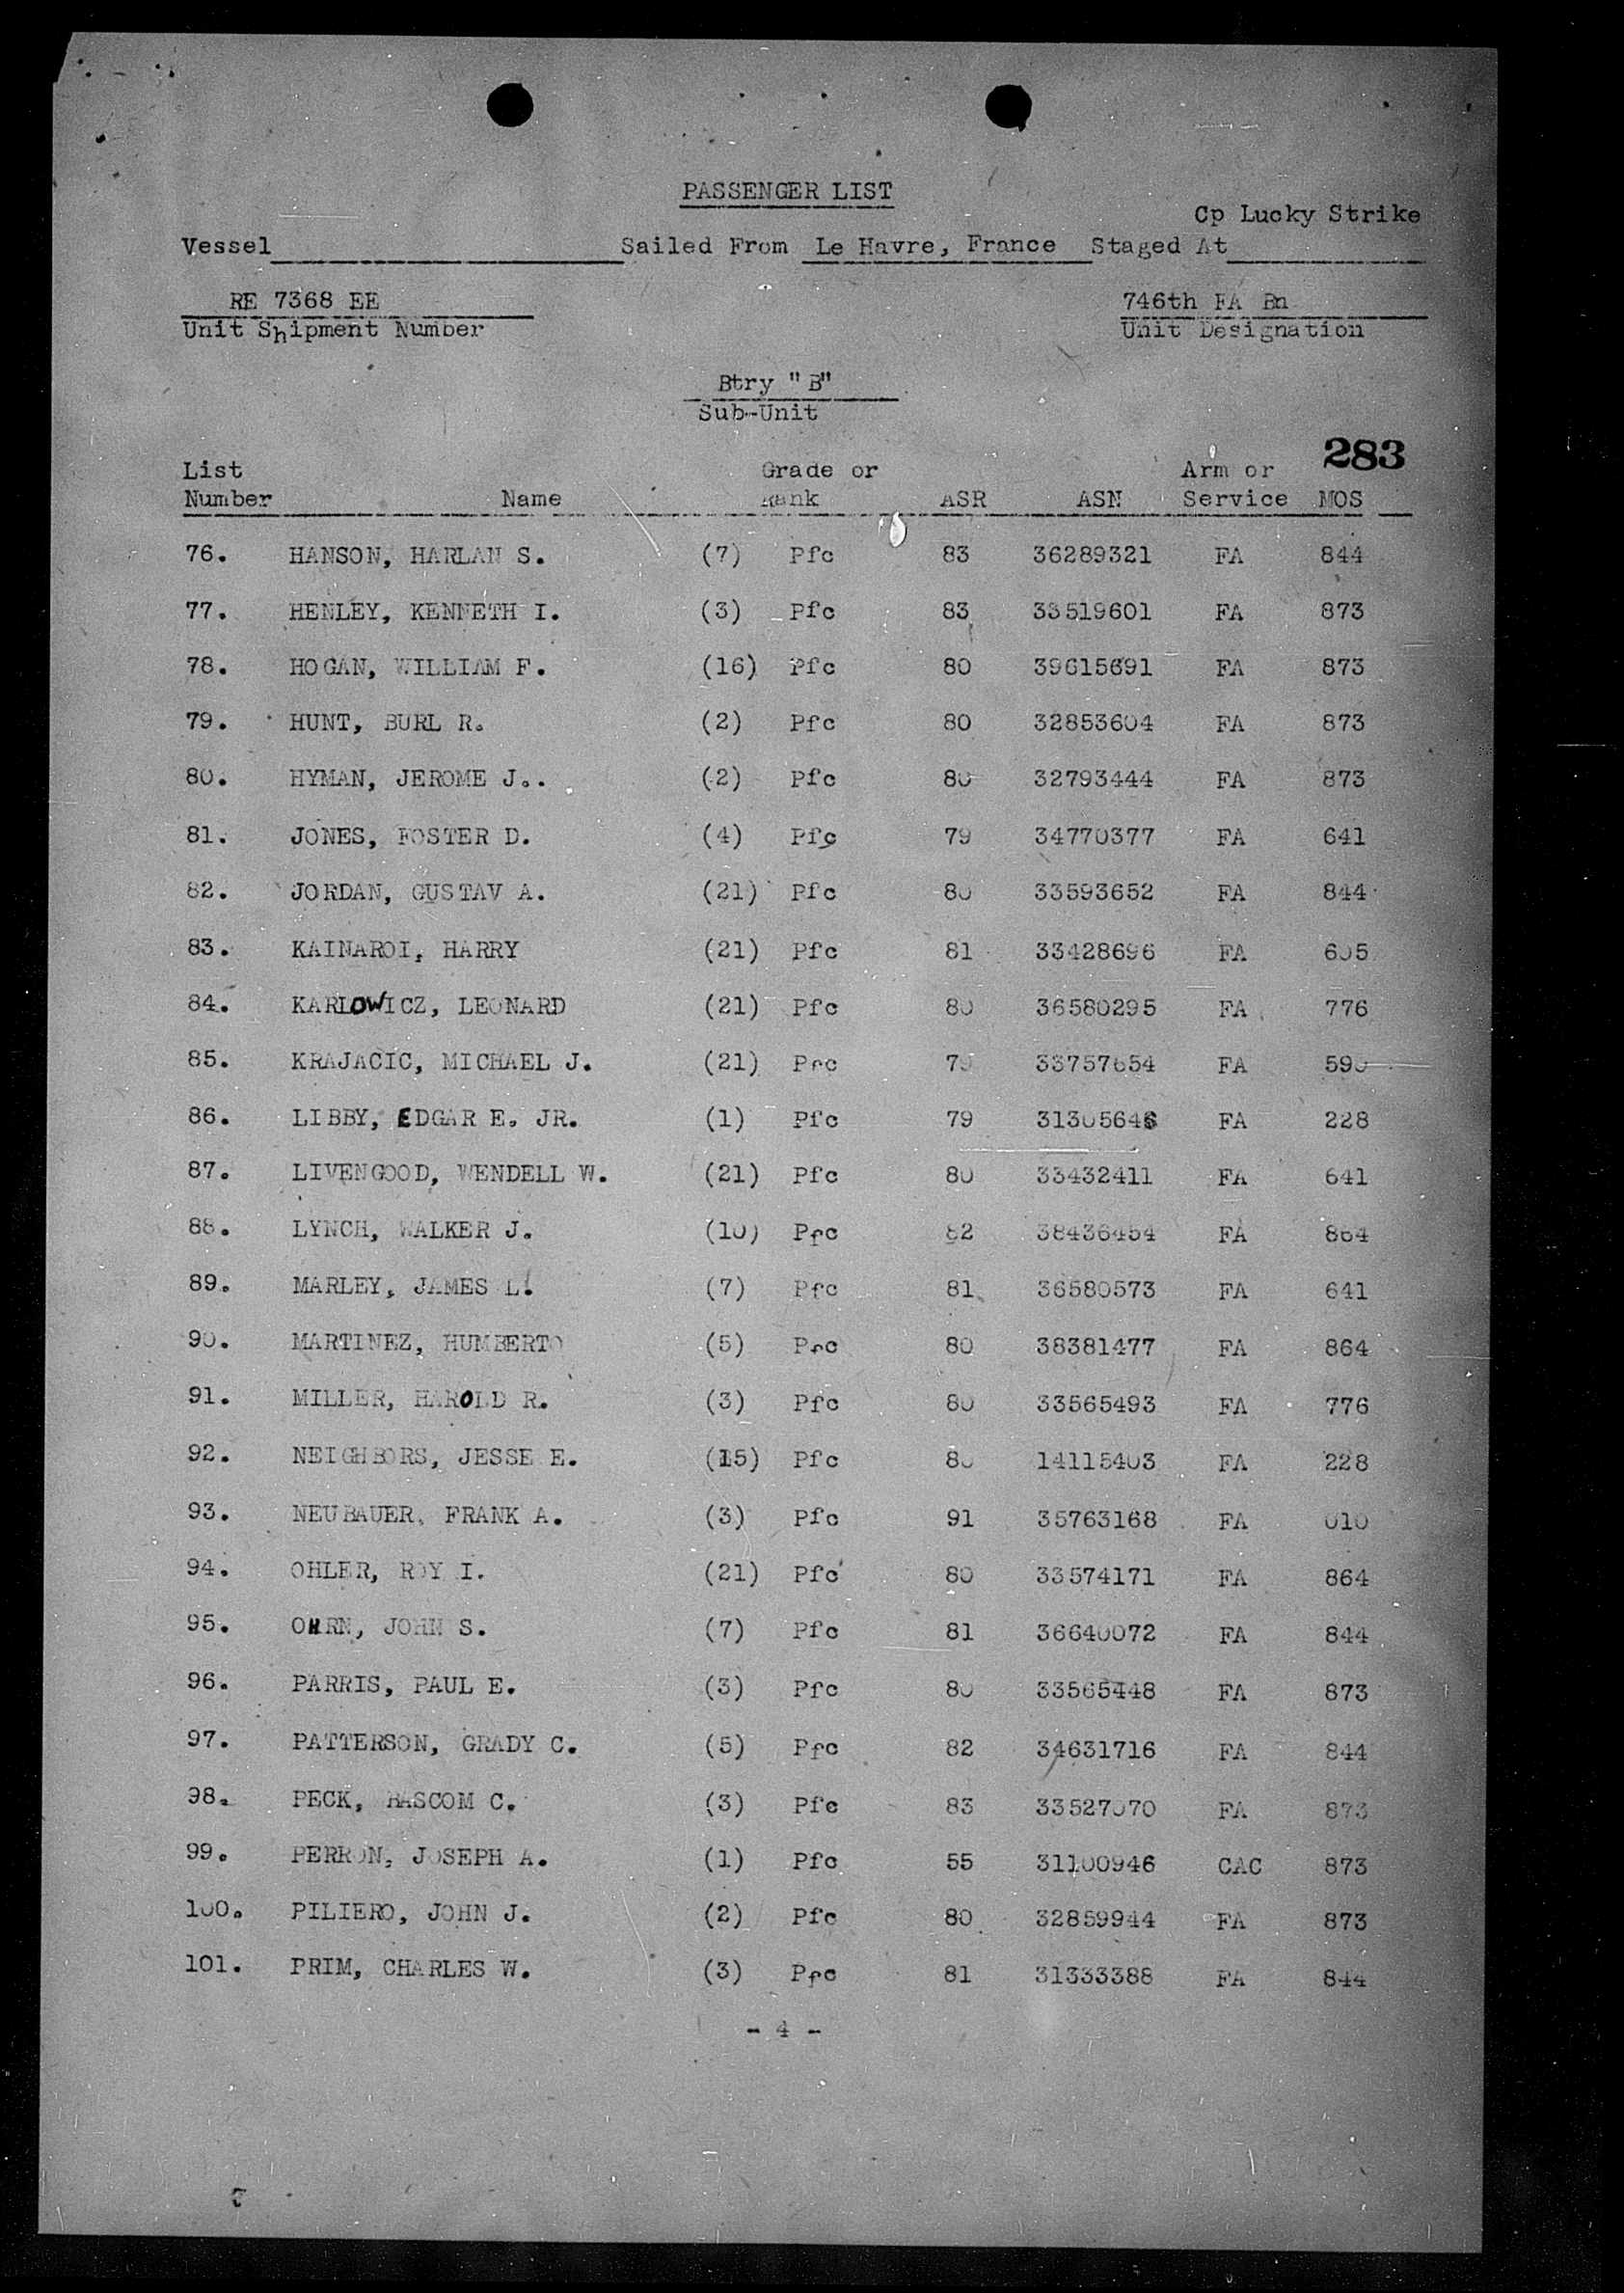 PASSENGER LIST
Cp Lucky Strike
Vessel Sailed From Le Havre, France Staged At
RE 7368 EE 746th FA Bn
Unit Shipment Number Unit Designation
Btry "B"
Sub-Unit
283
List Grade or Arm or
Number Name Rank ASR ASN Service MOS
76. HANSON, HARLAN S. (7) Pfc 83 36289321 FA 844
77. HENLEY, KENNETH I. (3) Pfc 83 33519601 FA 873
78. HOGAN, WILLIAM F. (16) Pfc 80 39615691 FA 873
79. HUNT, BURL R. (2) Pfc 80 32853604 FA 873
80. HYMAN, JEROME J.. (2) Pfc 80 32793444 FA 873
81. JONES, FOSTER D. (4) Pfc 79 34770377 FA 641
82. JORDAN, GUSTAV A. (21) Pfc 80 33593652 FA 844
83. KAINAROI, HARRY (21) Pfc 81 33428696 FA 605
84. KARLOWICZ, LEONARD (21) Pfc 80 36580295 FA 776
85. KRAJACIC, MICHAEL J. (21) Pfc 79 33757654 FA 590
86. LIBBY, EDGAR E. JR. (1) Pfc 79 31305646 FA 228
87. LIVENGOOD, WENDELL W. (21) Pfc 80 33432411 FA 641
88. LYNCH, WALKER J. (10) Pfc 82 38436454 FA 864
89. MARLEY, JAMES L. (7) Pfc 81 36580573 FA 641
90. MARTINEZ, HUMBERTO (5) Pfc 80 38381477 FA 864
91. MILLER, HAROLD R. (3) Pfc 80 33565493 FA 776
92. NEIGHBORS, JESSE E. (15) Pfc 80 14115403 FA 228
93. NEUBAUER, FRANK A. (3) Pfc 91 35763168 FA 010
94. OHLER, ROY I. (21) Pfc 80 33574171 FA 864
95. OHRN, JOHN S. (7) Pfc 81 36640072 FA 844
96. PARRIS, PAUL E. (3) Pfc 80 33565448 FA 873
97. PATTERSON, GRADY C. (5) Pfc 82 34631716 FA 844
98. PECK, BASCOM C. (3) Pfc 83 33527070 FA 873
99. PERRON, JOSEPH A. (1) Pfc 55 31100946 CAC 873
100. PILIERO, JOHN J. (2) Pfc 80 32859944 FA 873
101. PRIM, CHARLES W. (3) Pfc 81 31333388 FA 844
- 4 -